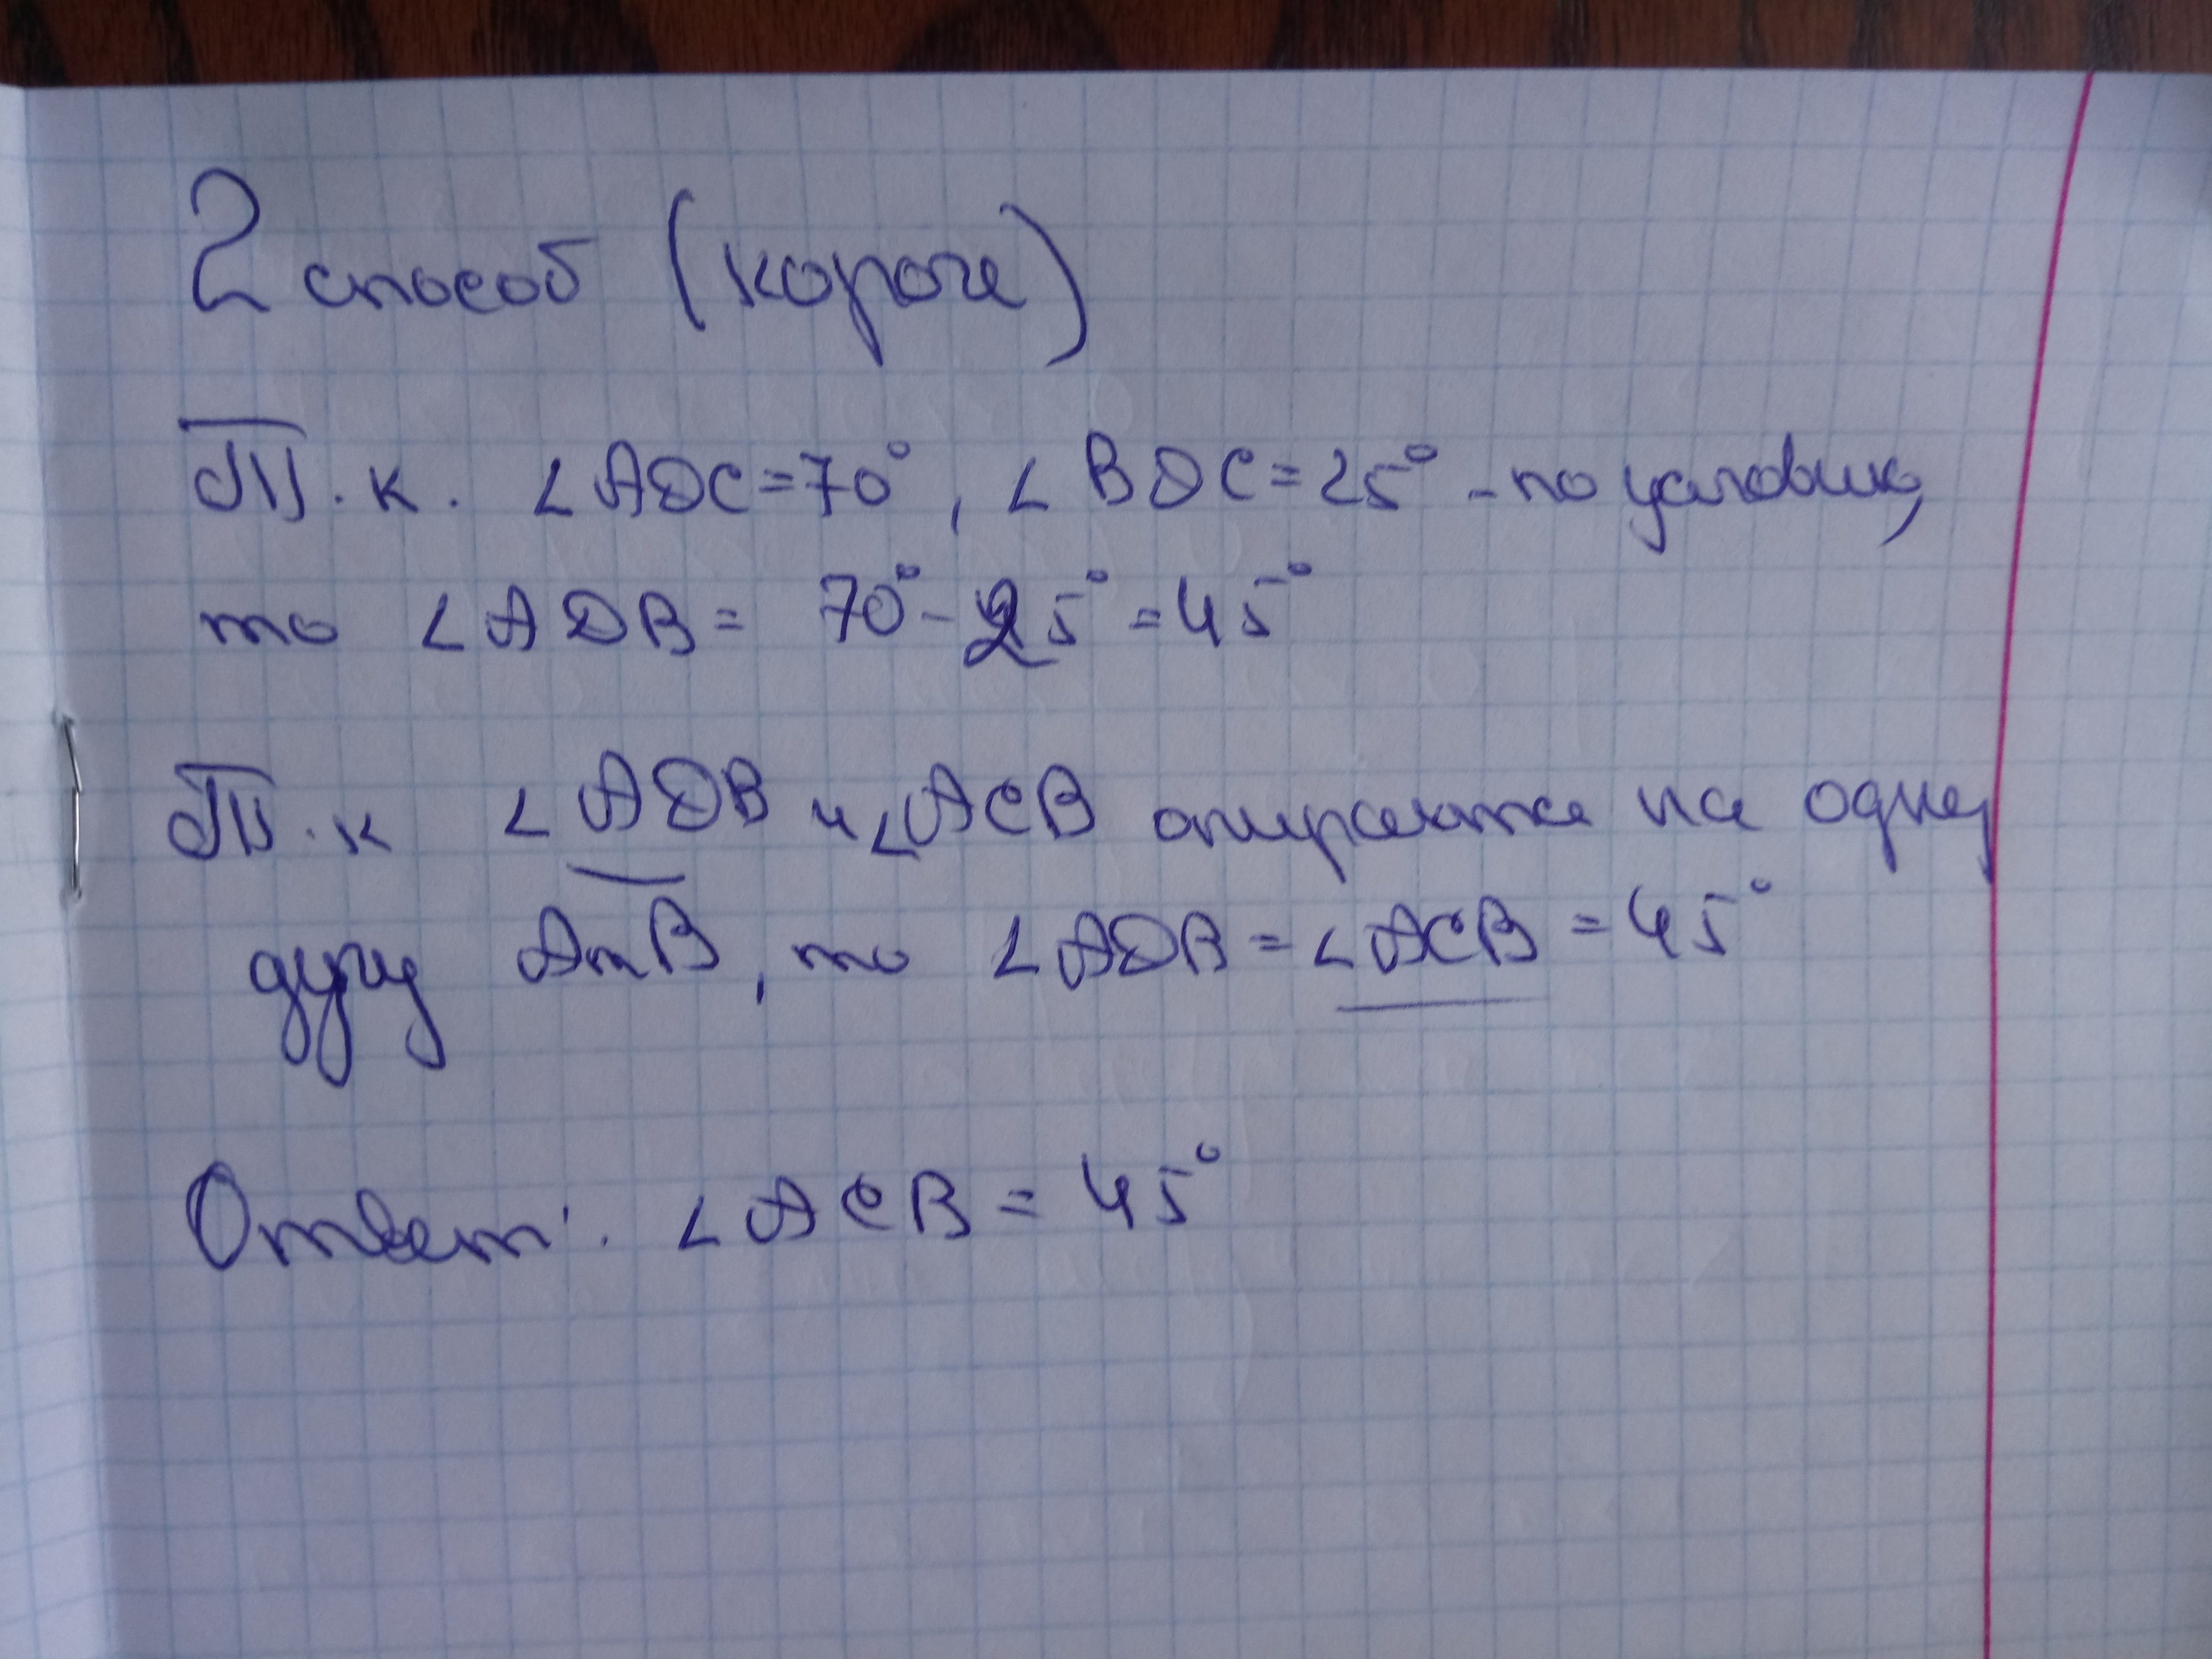 2 способ (короче)
Т.к. ∠ADC=70°, ∠BDC=25° - по условию,
то ∠ADB= 70°-25°=45°
Т.к ∠ADB и ∠ACB опираются на одну
дугу AmB, то ∠ADB=∠ACB=45°
Ответ: ∠ACB=45°